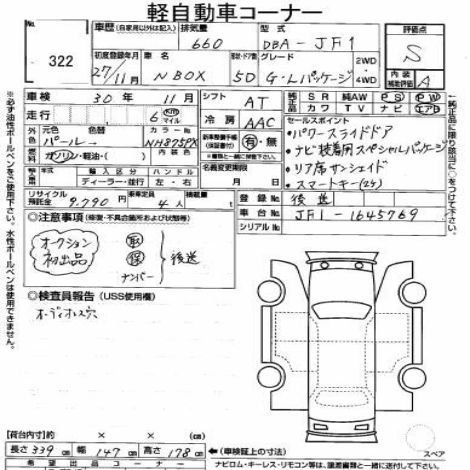 軽自動車コーナー
322
車歴(自家用以外は記入) 排気量 660 型式 DBA-JF1 評価点 S
初度登録年月 27年11月 車名 N BOX 形状・ドア数 5D グレード G・Lパッケージ 2WD 4WD 内装補助評価 A
車検 30年 11月 シフト AT 純正品 SR 純AW PS PW
走行 6 Km マイル 冷房 AAC カワ TV ナビ エアB
外色 元色 パール 色替 カラーNo. NH875PX 有・無
セールスポイント
・パワースライドドア
・ナビ装着用スペシャルパッケージ
・リア席サンシェイド
・スマートキー(2ケ)
燃料 ガソリン・軽油・( )
輸入車 輸入区分 ディーラー・並行 ハンドル 左・右
名義変更期限 月 日
リサイクル預託金 9.790円 乗車定員 4人 積載量 t
登録No. 後送
車台No. JF1-1645769
シリアルNo.
◎注意事項(修復・不具合箇所および状態等)
オークション初出品 取保 ナンバー 後送
◎検査員報告(USS使用欄)
オーディオレス穴
スペア
【荷台内寸】 × × (cm)
長さ 339cm 幅 147cm 高さ 178cm ←(車検証上の寸法)
希望出品コーナー
ナビロム・キーレス・リモコン等は、譲渡書類と一緒に送付して下さい。
※必ず油性ボールペンをご使用下さい。水性ボールペンは使用できません。